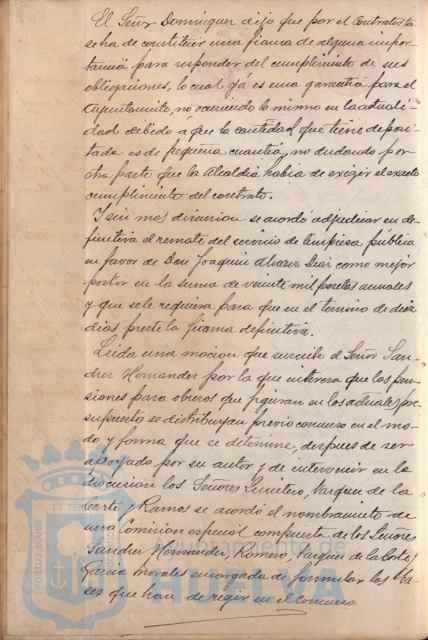 El Señor Dominguez dijo que por el Contratista
se ha de constituir una fianza de alguna impor-
tancia para responder del cumplimiento de sus
obligaciones, lo cual ya es una garantia para el
Ayuntamiento, no ocurriendo lo mismo en la actuali-
dad debido á que la cantidad que tiene deposi-
tada es de pequeña cuantia, no dudando por
otra parte que la Alcaldia habia de exigir el exacto
cumplimiento del contrato.
Y sin mas discusion se acordó adjudicar en de-
finitiva el remate del servicio de limpieza pública
en favor de Don Joaquin Alvarez Diaz como mejor
postor en la suma de veinte mil pesetas anuales
y que se le requiera para que en el termino de diez
dias preste la fianza definitiva.
Leida una mocion que suscribe el Señor San-
chez Hernandez por la que interesa que las pen-
siones para obreros que figuran en los actuales pre-
supuestos se distribuyan previo concurso en el mo-
do y forma que se determine, despues de ser
apoyada por su autor y de intervenir en la
discusion los Señores Quintero, Vazquez de la
Corte y Ramos se acordó el nombramiento de
una Comision especial compuesta de los Señores
Sanchez Hernandez, Romero, Vazquez de la Corte y
Garcia Morales encargada de formular las ba-
ses que han de regir en el Concurso